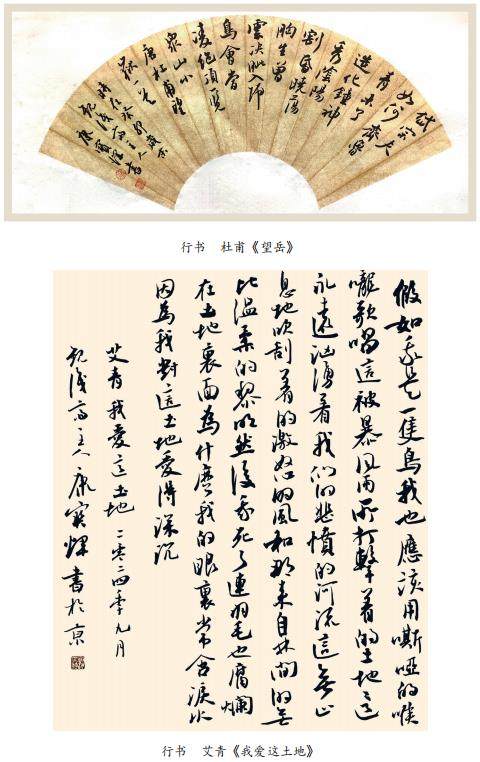 岱宗夫
如何齊魯
青未了
造化鍾神
秀陰陽
割昏曉蕩
胸生曾
雲决眦入歸
鳥會當
凌絶頂一覽
衆山小
唐杜甫望
嶽一首
時在癸卯
主人
康寶書
行书 杜甫《望岳》
假如我是一隻鳥我也應該用嘶啞的喉
嚨歌唱這被暴風雨所打擊着的土地這
永遠汹湧着我們的悲憤的河流這無止
息地吹刮着的激怒的風和那來自林間的無
比温柔的黎明然後我死了連羽毛也腐爛
在土地裏面為什麽我的眼裏常含淚水
因為我對這土地愛得深沉
艾青我愛這土地 二零二四年九月
主人康寶書於京
行书 艾青《我爱这土地》